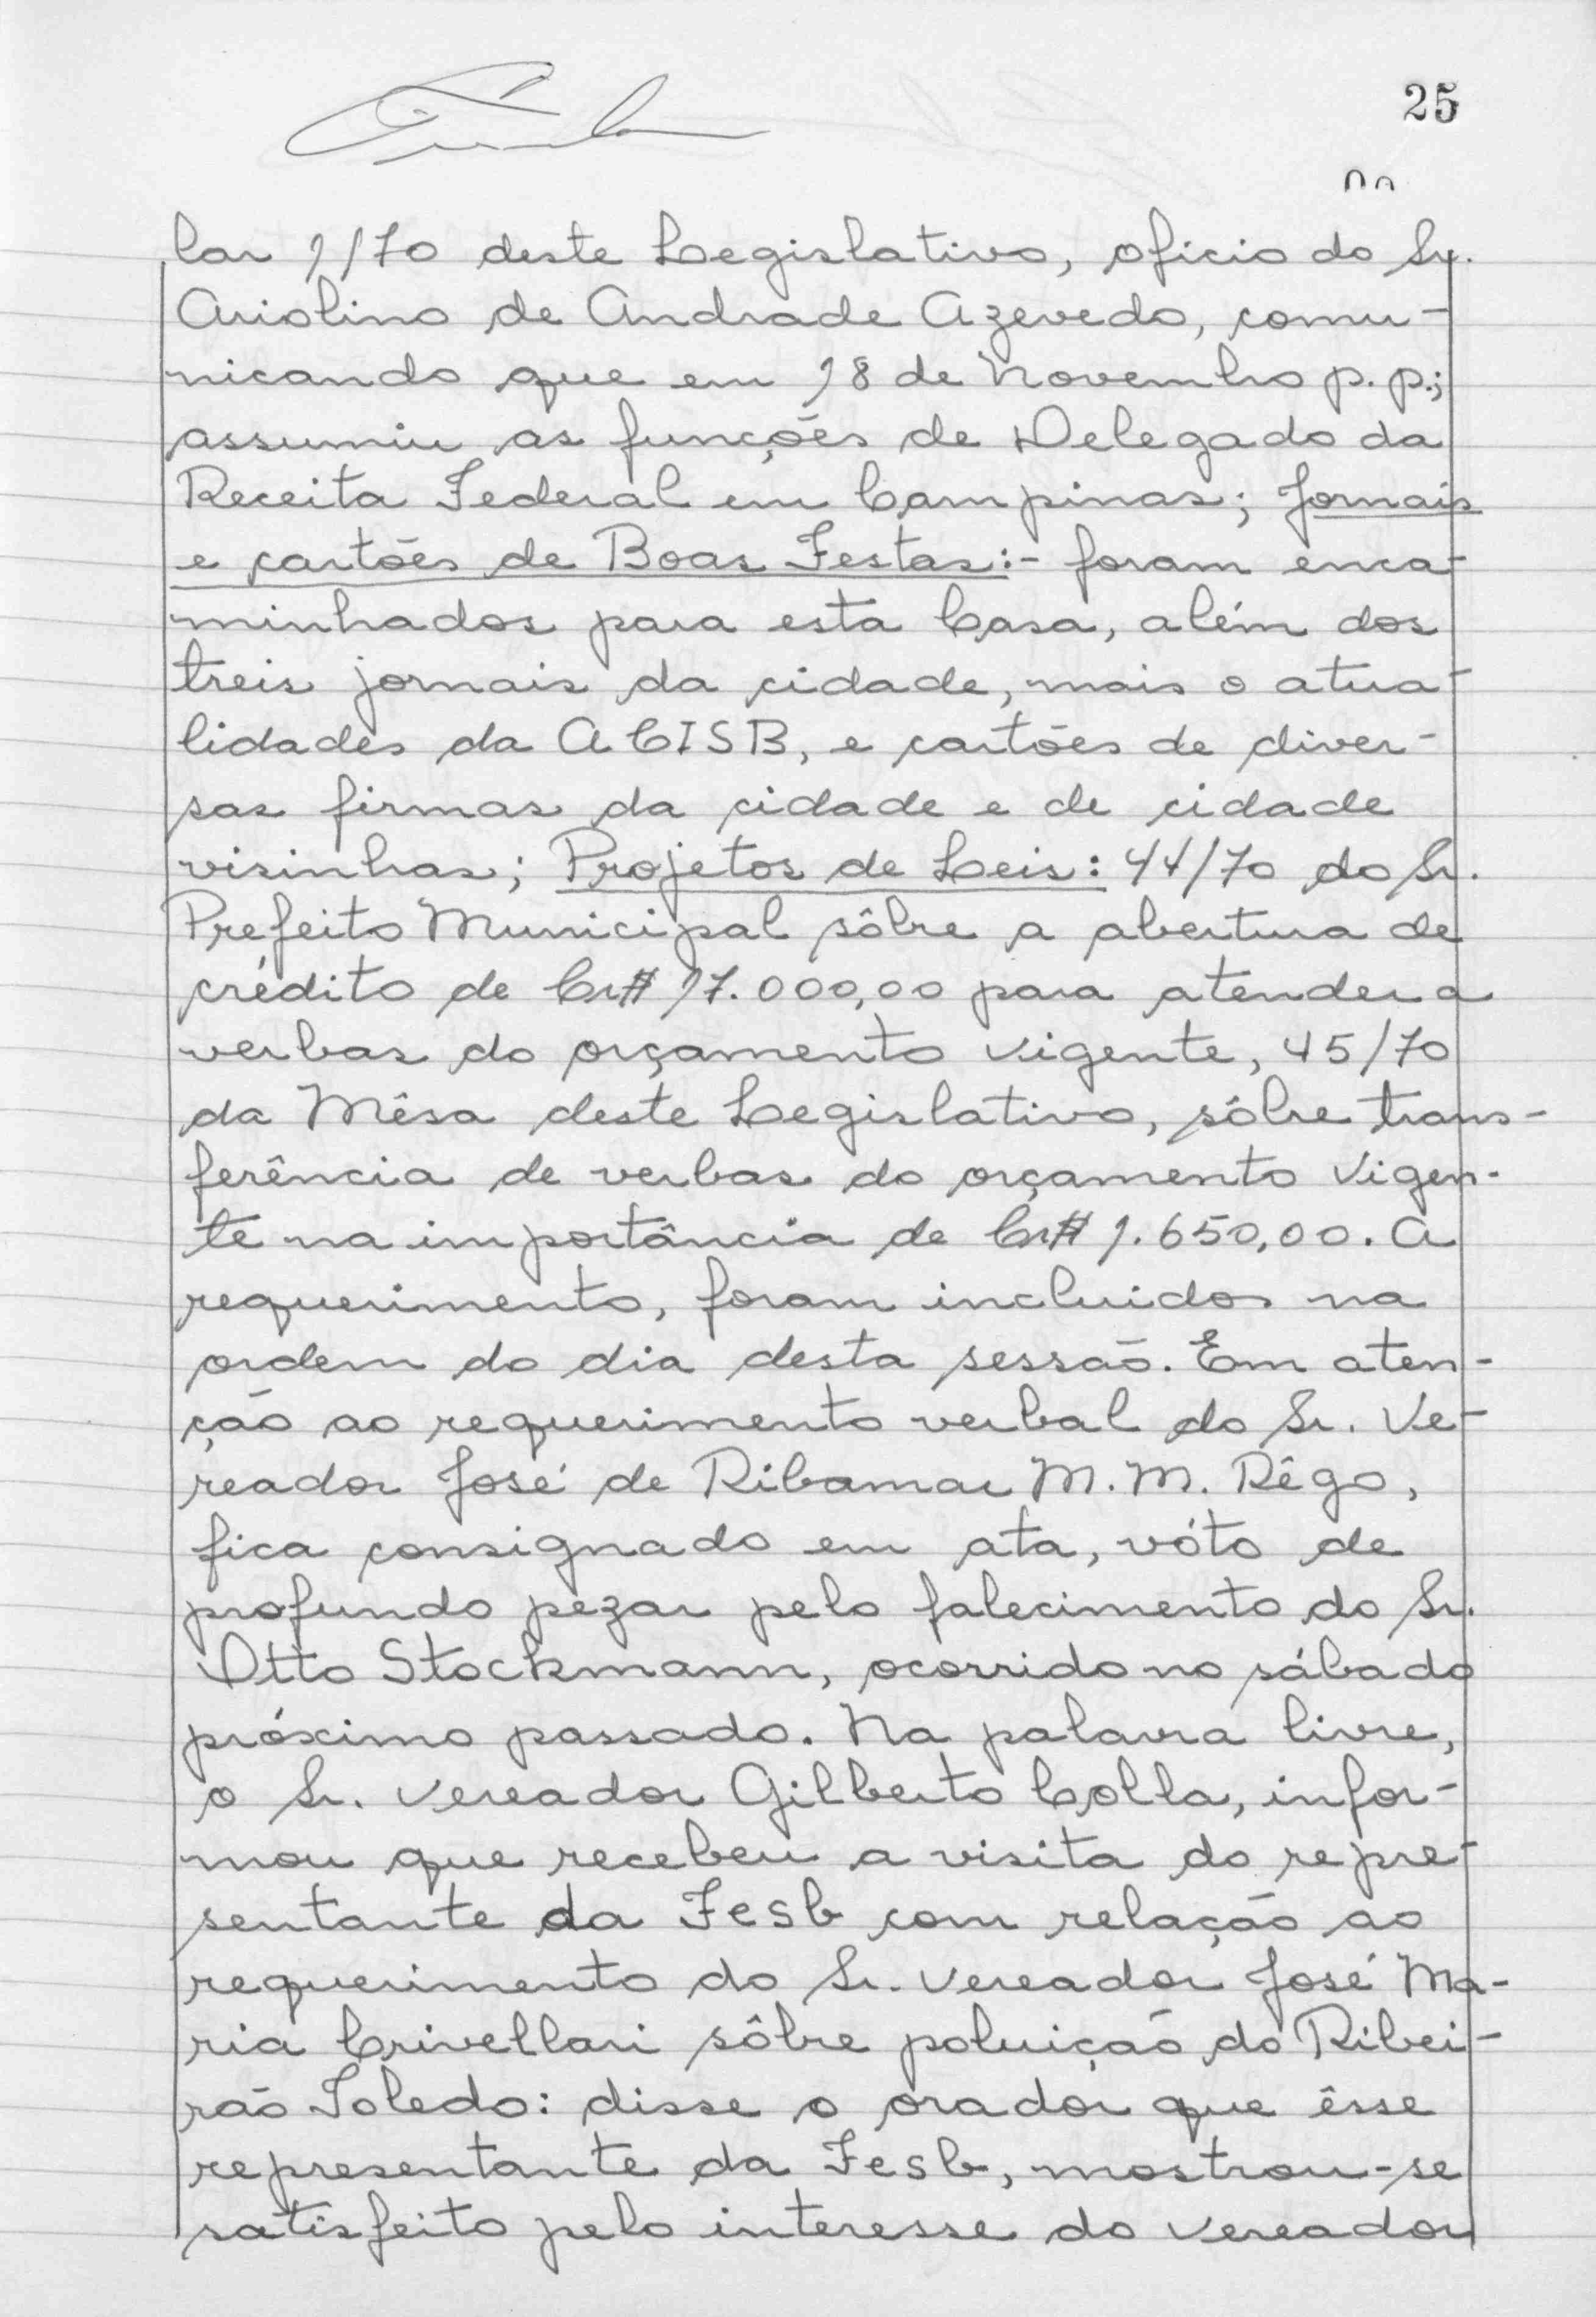 25
lar 1/70 deste Legislativo, oficio do Sr.
Ariolino de Andrade Azevedo, comu-
nicando que em 18 de Novembro p.p.;
assumiu as funções de Delegado da
Receita Federal em Campinas; Jornais
e cartões de Boas Festas:- foram enca-
minhados para esta Casa, além dos
treis jornais da cidade, mais o atua-
lidades da ACISB, e cartões de diver-
sas firmas da cidade e de cidade
visinhas; Projetos de Leis: 44/70 do Sr.
Prefeito Municipal sôbre a abertura de
crédito de Cr$ 17.000,00 para atender a
verbas do orçamento vigente, 45/70
da Mêsa deste Legislativo, sôbre trans-
ferência de verbas do orçamento vigen-
te na importância de Cr$ 1.650,00. A
requerimento, foram incluidos na
ordem do dia desta sessão. Em aten-
ção ao requerimento verbal do Sr. Ve-
reador José de Ribamar M. M. Rêgo,
fica consignado em ata, vóto de
profundo pezar pelo falecimento do Sr.
Otto Stockmann, ocorrido no sábado
próximo passado. Na palavra livre,
o Sr. Vereador Gilberto Colla, infor-
mou que recebeu a visita do repre-
sentante da Fesb com relação ao
requerimento do Sr. Vereador José Ma-
ria Crivellari sôbre poluição do Ribei-
rão Toledo: disse o orador que êsse
representante da Fesb, mostrou-se
satisfeito pelo interesse do vereador